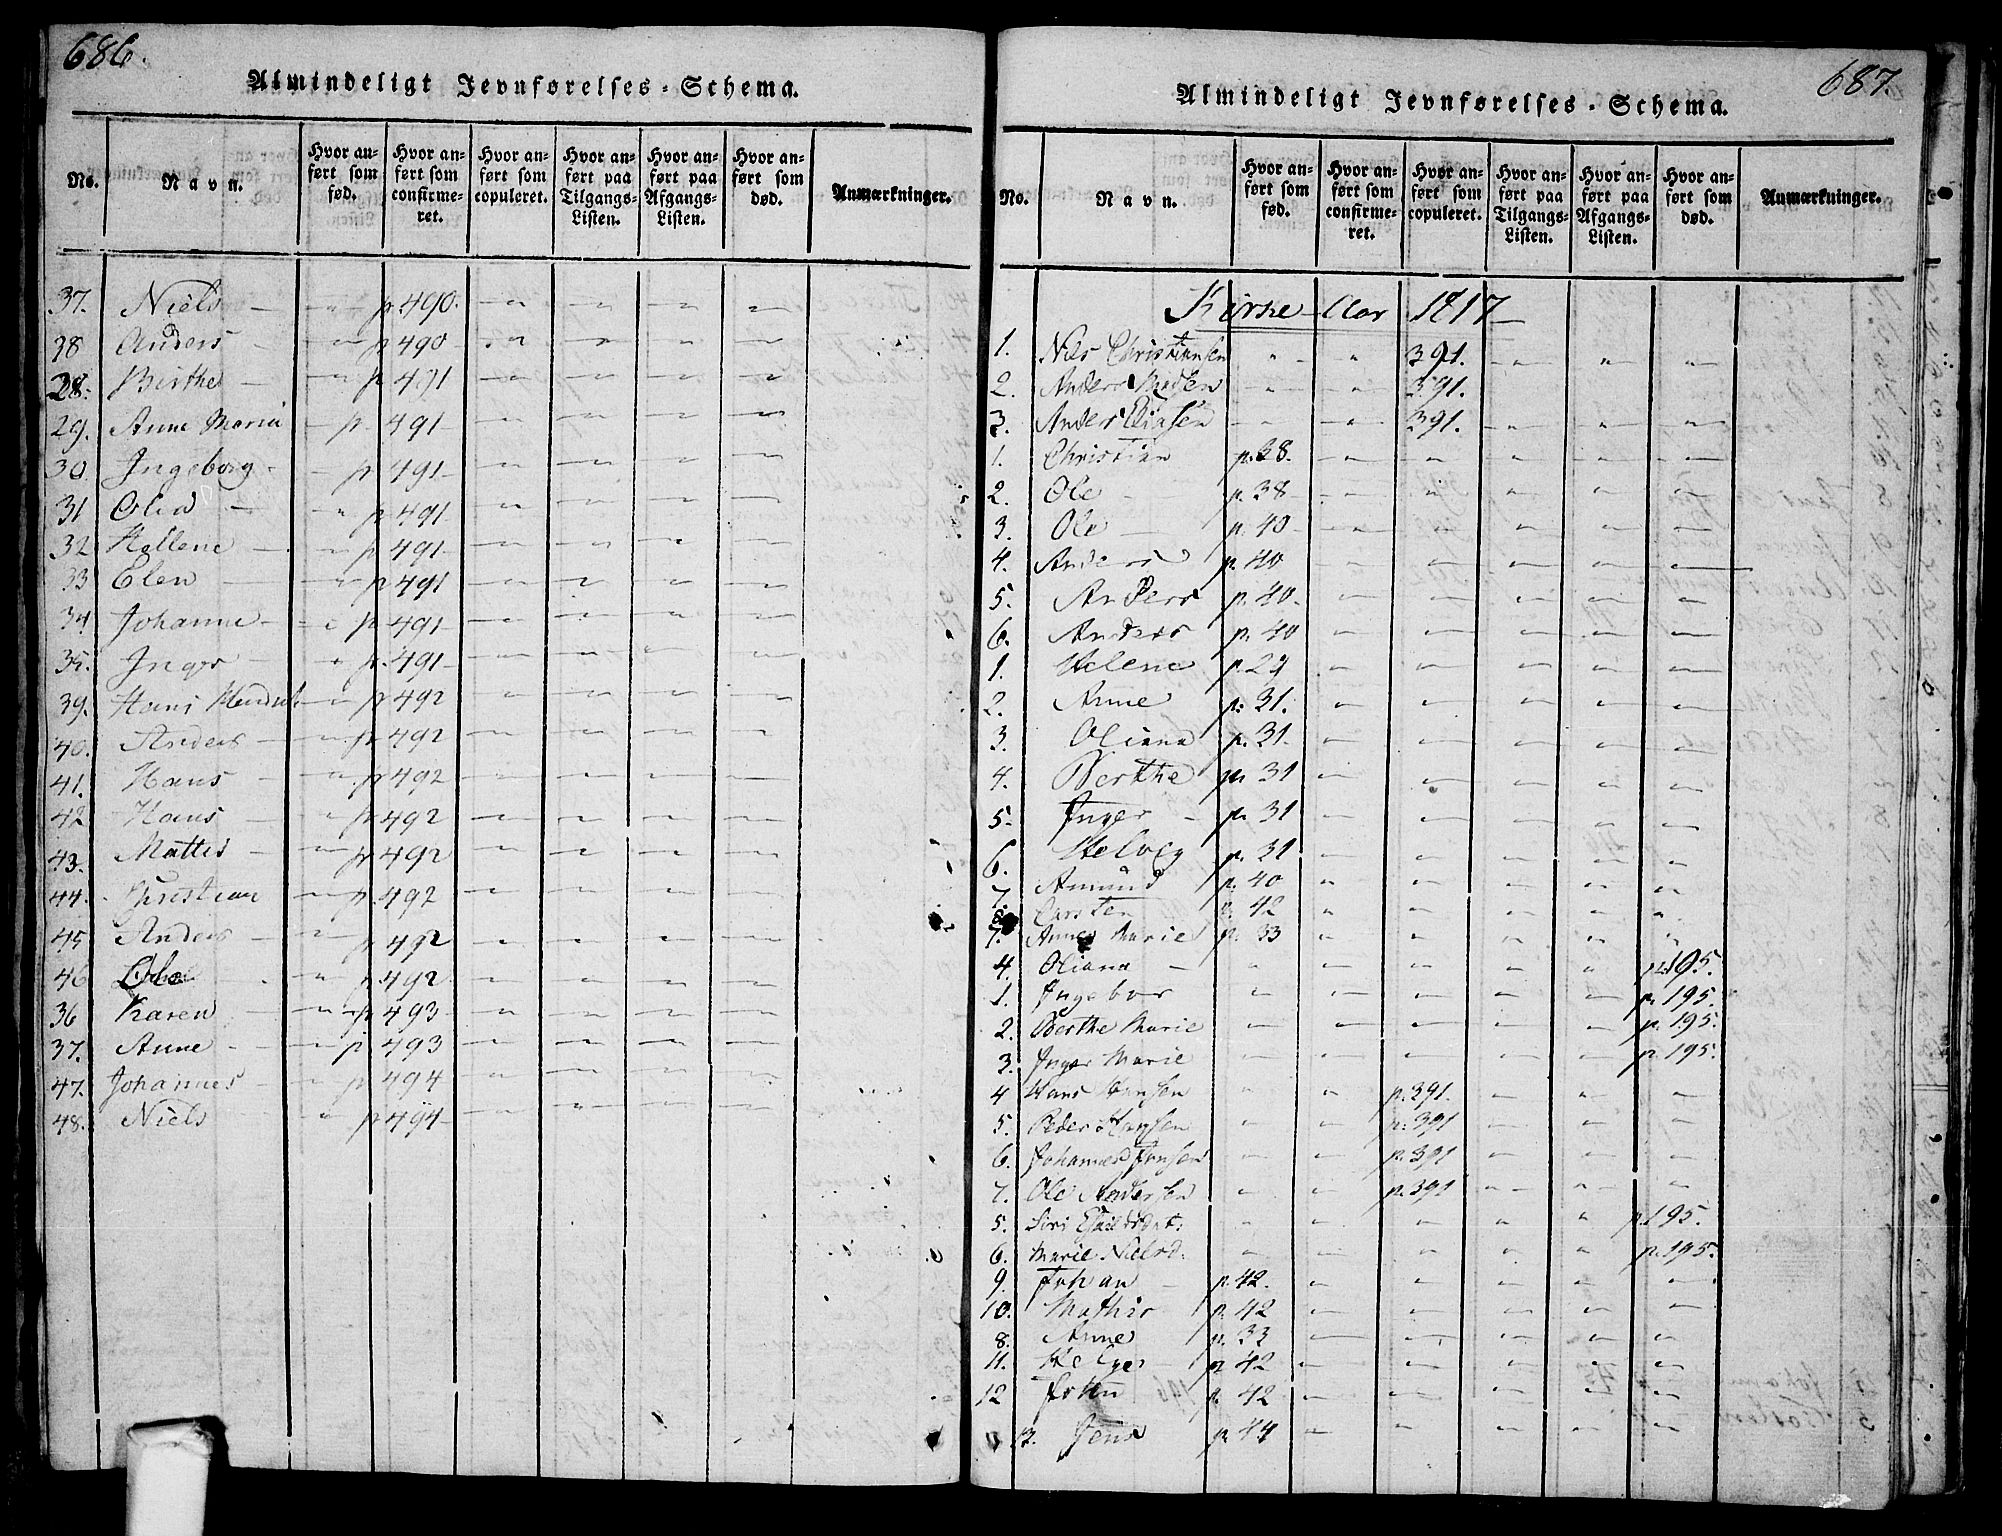 686.
Almindeligt Jevnførelses-Schema.
No. Navn. Hvor anført som fød. Hvor anført som confirmeret. Hvor anført som copuleret. Hvor anført paa Tilgangs-Listen. Hvor anført paa Afgangs-Listen. Hvor anført som død. Anmærkninger.
37. Niels p. 490.
38 Anders p 490
28. Birthe p 491
29. Anne Maria p. 491
30. Ingeborg p 491
31 Olea p 491
32 Hellene p 491
33 Elen p 491
34 Johanne p 491
35. Inger p. 491
39. Hans p 492
40. Anders p 492
41. Hans p 492
42 Hans p 492
43. Mattis p 492
44. Christian p. 492
45 Anders p 492
46 Ole p 492
36 Karen p 493
37. Anne p 493
47. Johannes p 494
48. Niels p 494
687.
Almindeligt Jevnførelses-Schema.
No. Navn. Hvor anført som fød. Hvor anført som confirmeret. Hvor anført som copuleret. Hvor anført paa Tilgangs-Listen. Hvor anført paa Afgangs-Listen. Hvor anført som død. Anmærkninger.
Kirke-Aar 1817
1. Nils Christiansen 391.
2. Anders Madsen 391.
3. Anders 391.
1. Christian p. 38.
2. Ole p. 38
3. Ole p. 40
4. Anders p. 40
5. Anders p. 40.
6. Anders p. 40
1. Helene p. 29
2. Anne p. 31.
3. Oliana p. 31.
4. Berthe p. 31
5. Inger p. 31
6. Helvig p. 31
7. Amund p. 40
8 Carsten p. 42
7. Anne Marie p. 33
4. Oliana p. 195.
1. Ingebor p. 195.
2. Berthe Marie p. 195.
3. Inger Marie p. 195.
4 Hans Hansen p. 391.
5. Peder Hansen p. 391
6. Johannes Jensen p. 391
7. Ole Andersen p. 391
5. Siri p. 195.
6. Marie Nielsd. p. 195.
9. Johan p. 42.
10. Mathis p. 42
8. Anne p. 33
11. Helger p 42
12 John p. 42
13. Jens p. 44